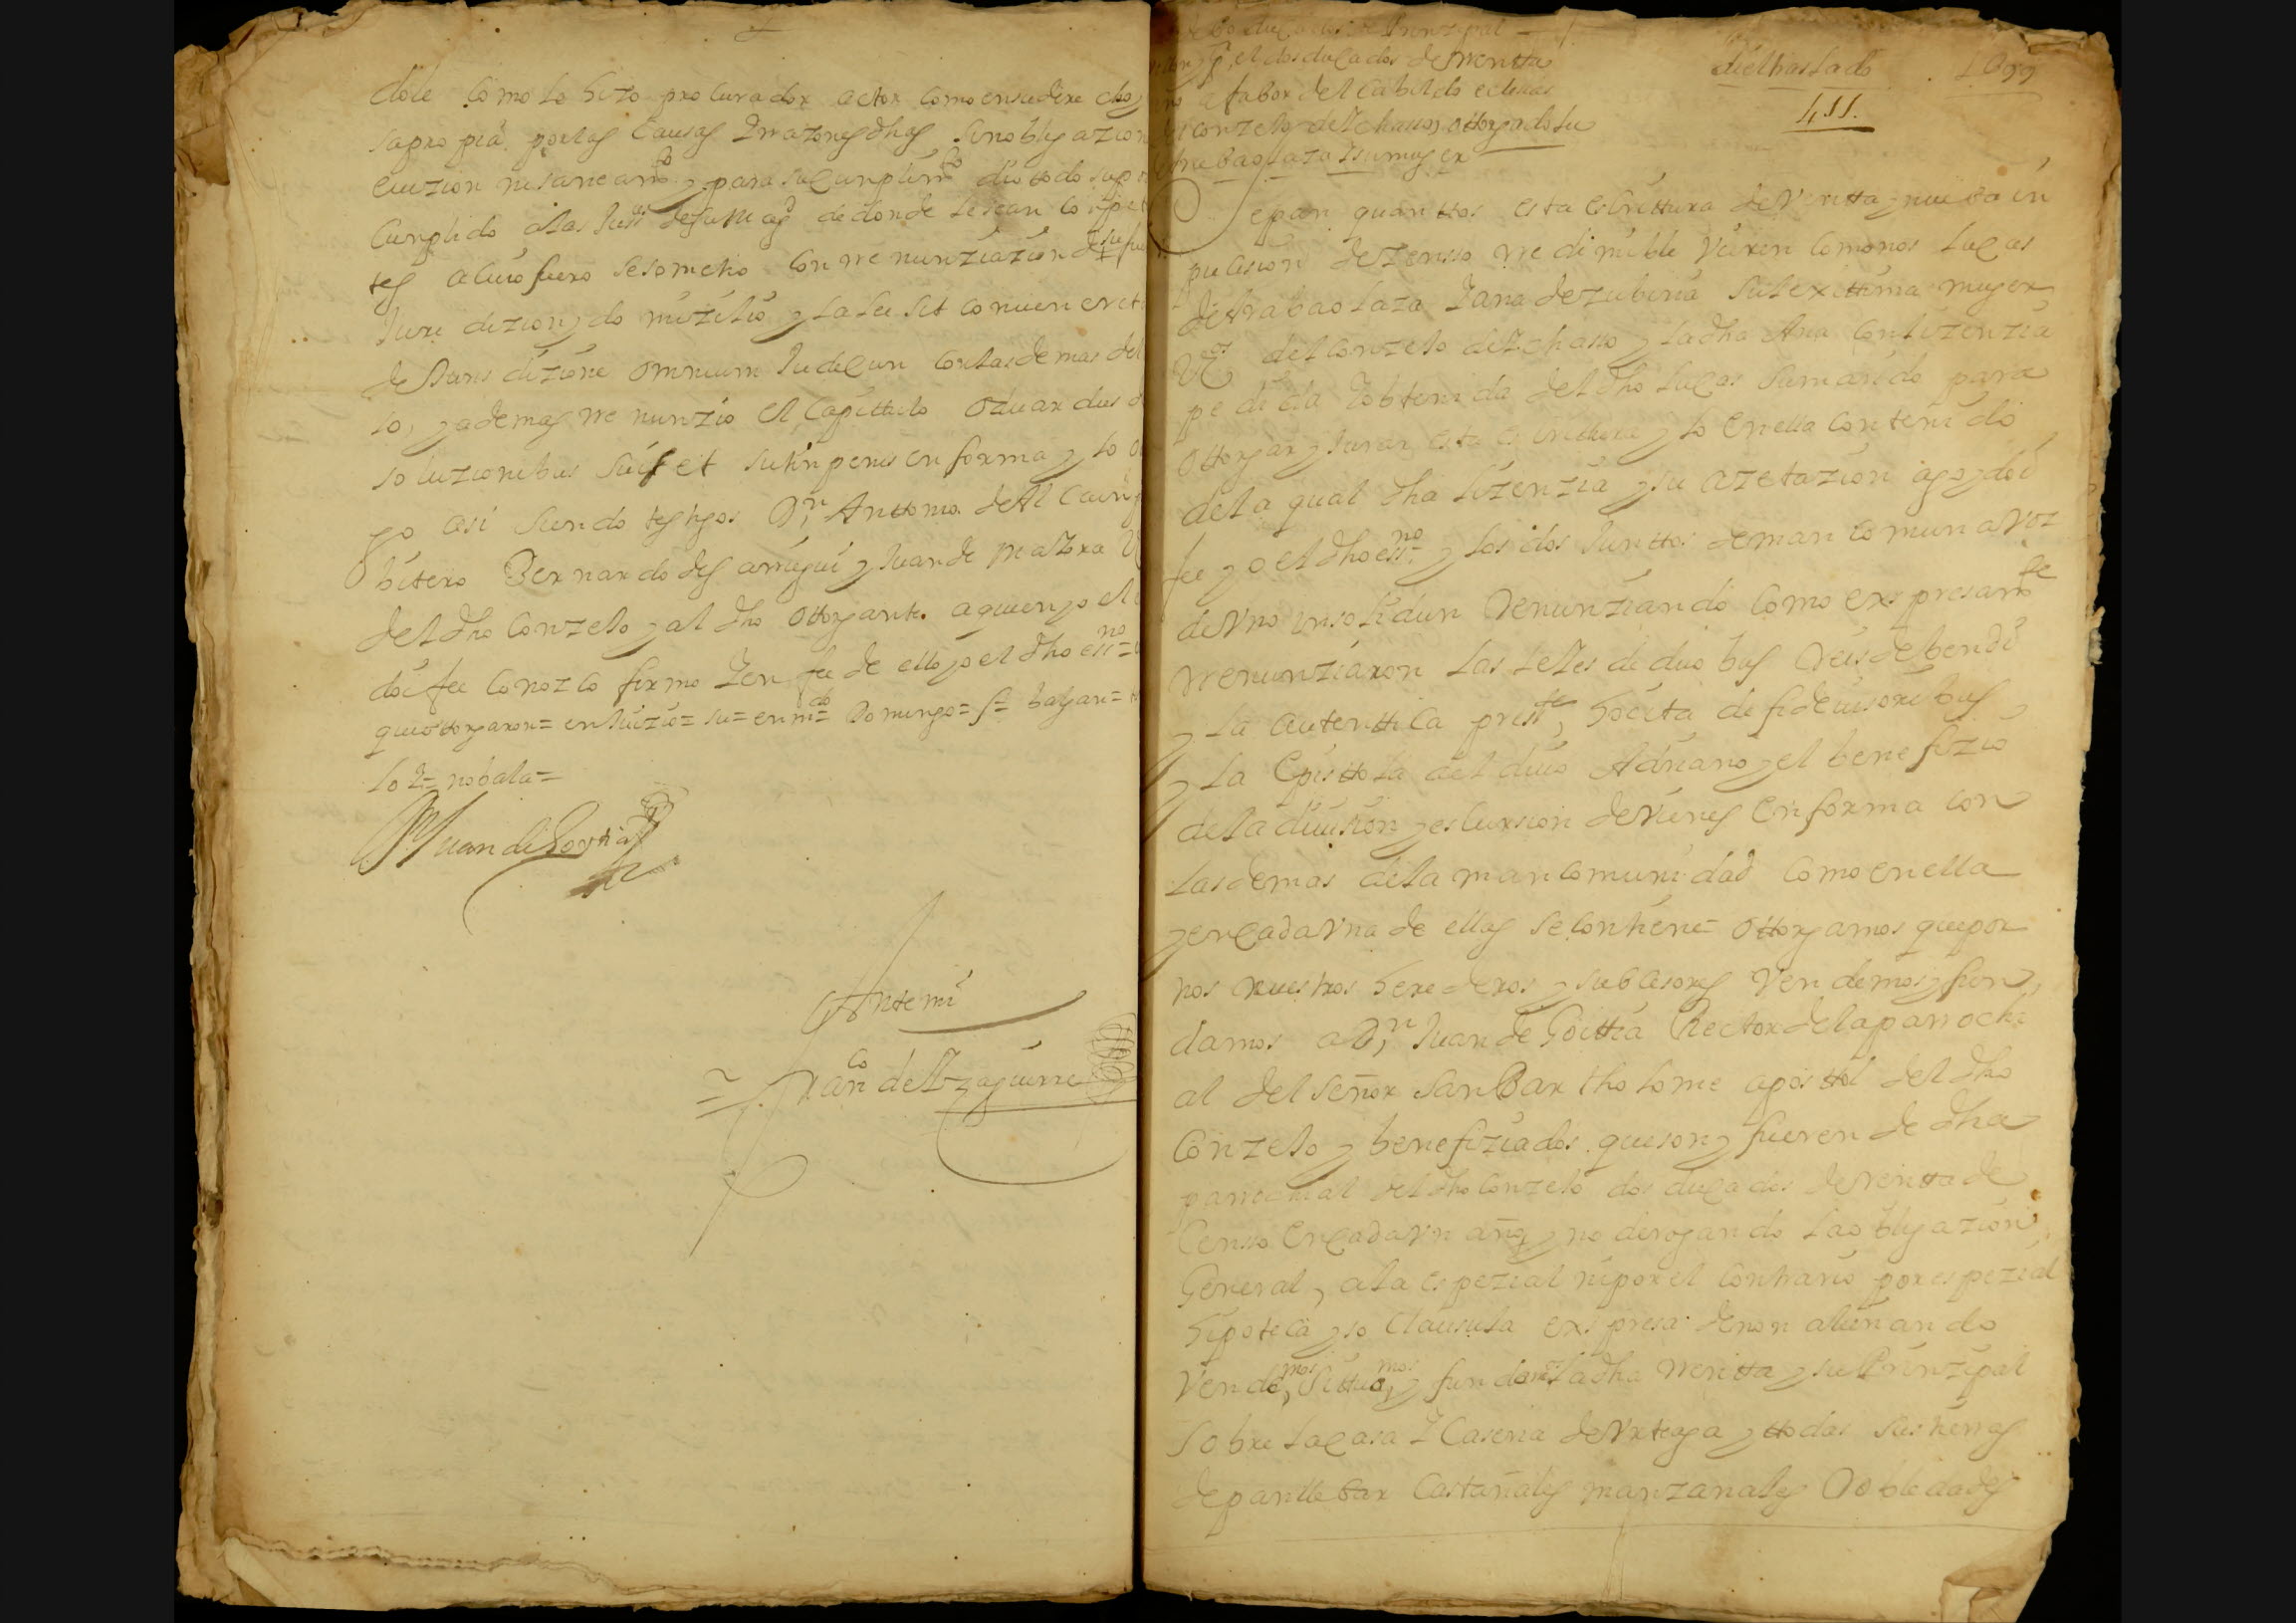 dole como lo hizo procurador actor como en su dhre cho y
sapropia por las causas Y rrazones dhas sin obligazion
euizion ni saneamto y para su cumplimto dio todo su po
cumplido a las Juss de su Magd de donde le sean conpet
tes a cuio fuero se sometio con rrenunziazion de su fue
Juridizion y domizilio y la lei sit conuenerit
de Jurisdizione omnium Judicun con las demas del
lo, y ademas rrenunzio el Capittulo oduardus d
soluzionibus suis et sutinpenis en forma y lo o
go asi siendo testigos Dn Anttonio de Al
bitero Bernardo de amigui y Juan de
del dho Conzeto y al dho ottorgante a quien yo el
doi fee conozco firmo Y en fee de ello yo el dho essno =
que ottorgaron = en Juizio = su = en mdo = Domingo = s = bayan =
lo Y = no bala =
Juan de Goitia
Ante mi
Franco de Yzaguirre
de Prinzipal
el dos ducados de rrentta
a fabor del Cabildo ecleias
conzeto de Echasso ottorgado Lu
trabaolaza Y su muger
diel traslado . 1699
411.
Sepan quanttos esta escrittura de Ventta y nueba in
pusision de zensso rredimible Vieren como nos Lucas
de trabaolaza Y ana de zubiria su lexittima muger
Vos del conzeto de Echasso y la dha Ana con lizenzia
pedida Y obtenida del dho Lucas su marido para
ottorgar y Jurar esta escrittura y lo en ella contenido
de la qual dha lizenzia y su azetazion yo doi
fee yo el dho essno y los dos Junttos de mancomun a voz
de Vno insolidun Renunziando como expresamte
rrenunziaron las leies de duobus Reis debendi
y la autenttica presste, hocita de fideiusoribus
y la Epistola del diuo Adriano y el benefizio
de la diuision y escursion de Vienes en forma con
las demas de la mancomunidad como en ella
y en cada vna de ellas se contiene = ottorgamos que por
nos nuestros herederos y subcesores Vendemos y fun
damos a Dn Juan de Goittia Rector de la parrochi
al del señor San Bartholome aposttol del dho
Conzeto y benefiziados que son y fueren de dha
parrochial del dho Conzeto dos ducados de rrentta de
Censo en cada vn año y no derogando la obligazion
General, a la espezial ni por el contrario por espezial
hipoteca y so Clausula expresa de non alienando
Vendemos, Sittuamos, y fundamos la dha rrentta y su Prinzipal
sobre la casa Y Caseria de Vrteaga y ttodas sus tierras
de panllebar Castañales manzanales Robledades